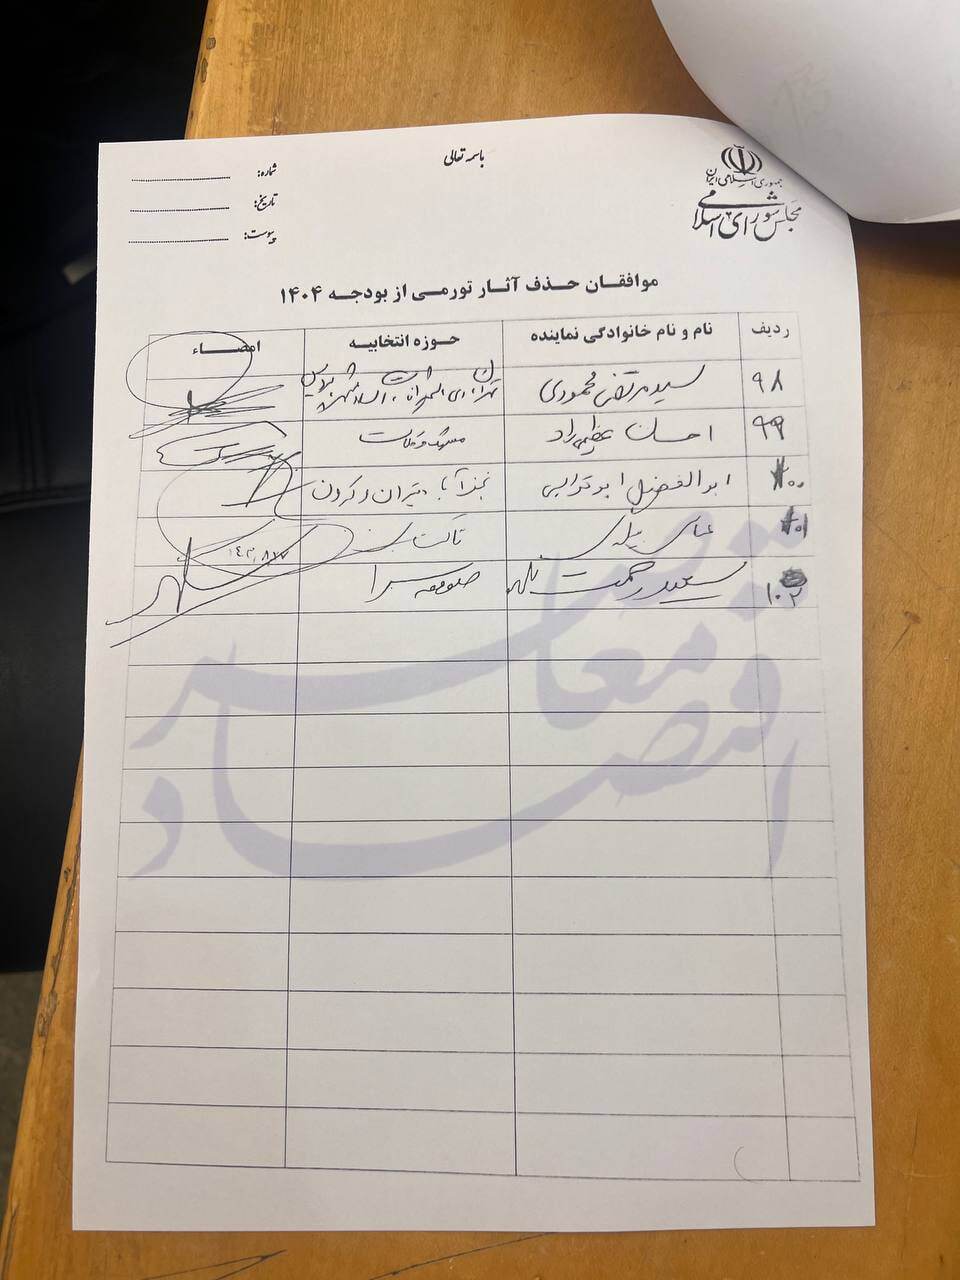 باسمه تعالی
جمهوری اسلامی ایران
مجلس شورای اسلامی
شماره:
تاریخ:
پیوست:
موافقان حذف آثار تورمی از بودجه ۱۴۰۴
ردیف نام و نام خانوادگی نماینده حوزه انتخابیه امضاء
۹۸ سید مرتضی محمودی تهران، ری
۹۹ احسان عظیمی راد
۱۰۰ ابوالفضل ابوترابی نجف آباد، تیران و کرون
۱۰۱ تاکستان
۱۰۲ سعید رحمت زاده صومعه سرا
اقتصاد معاصر